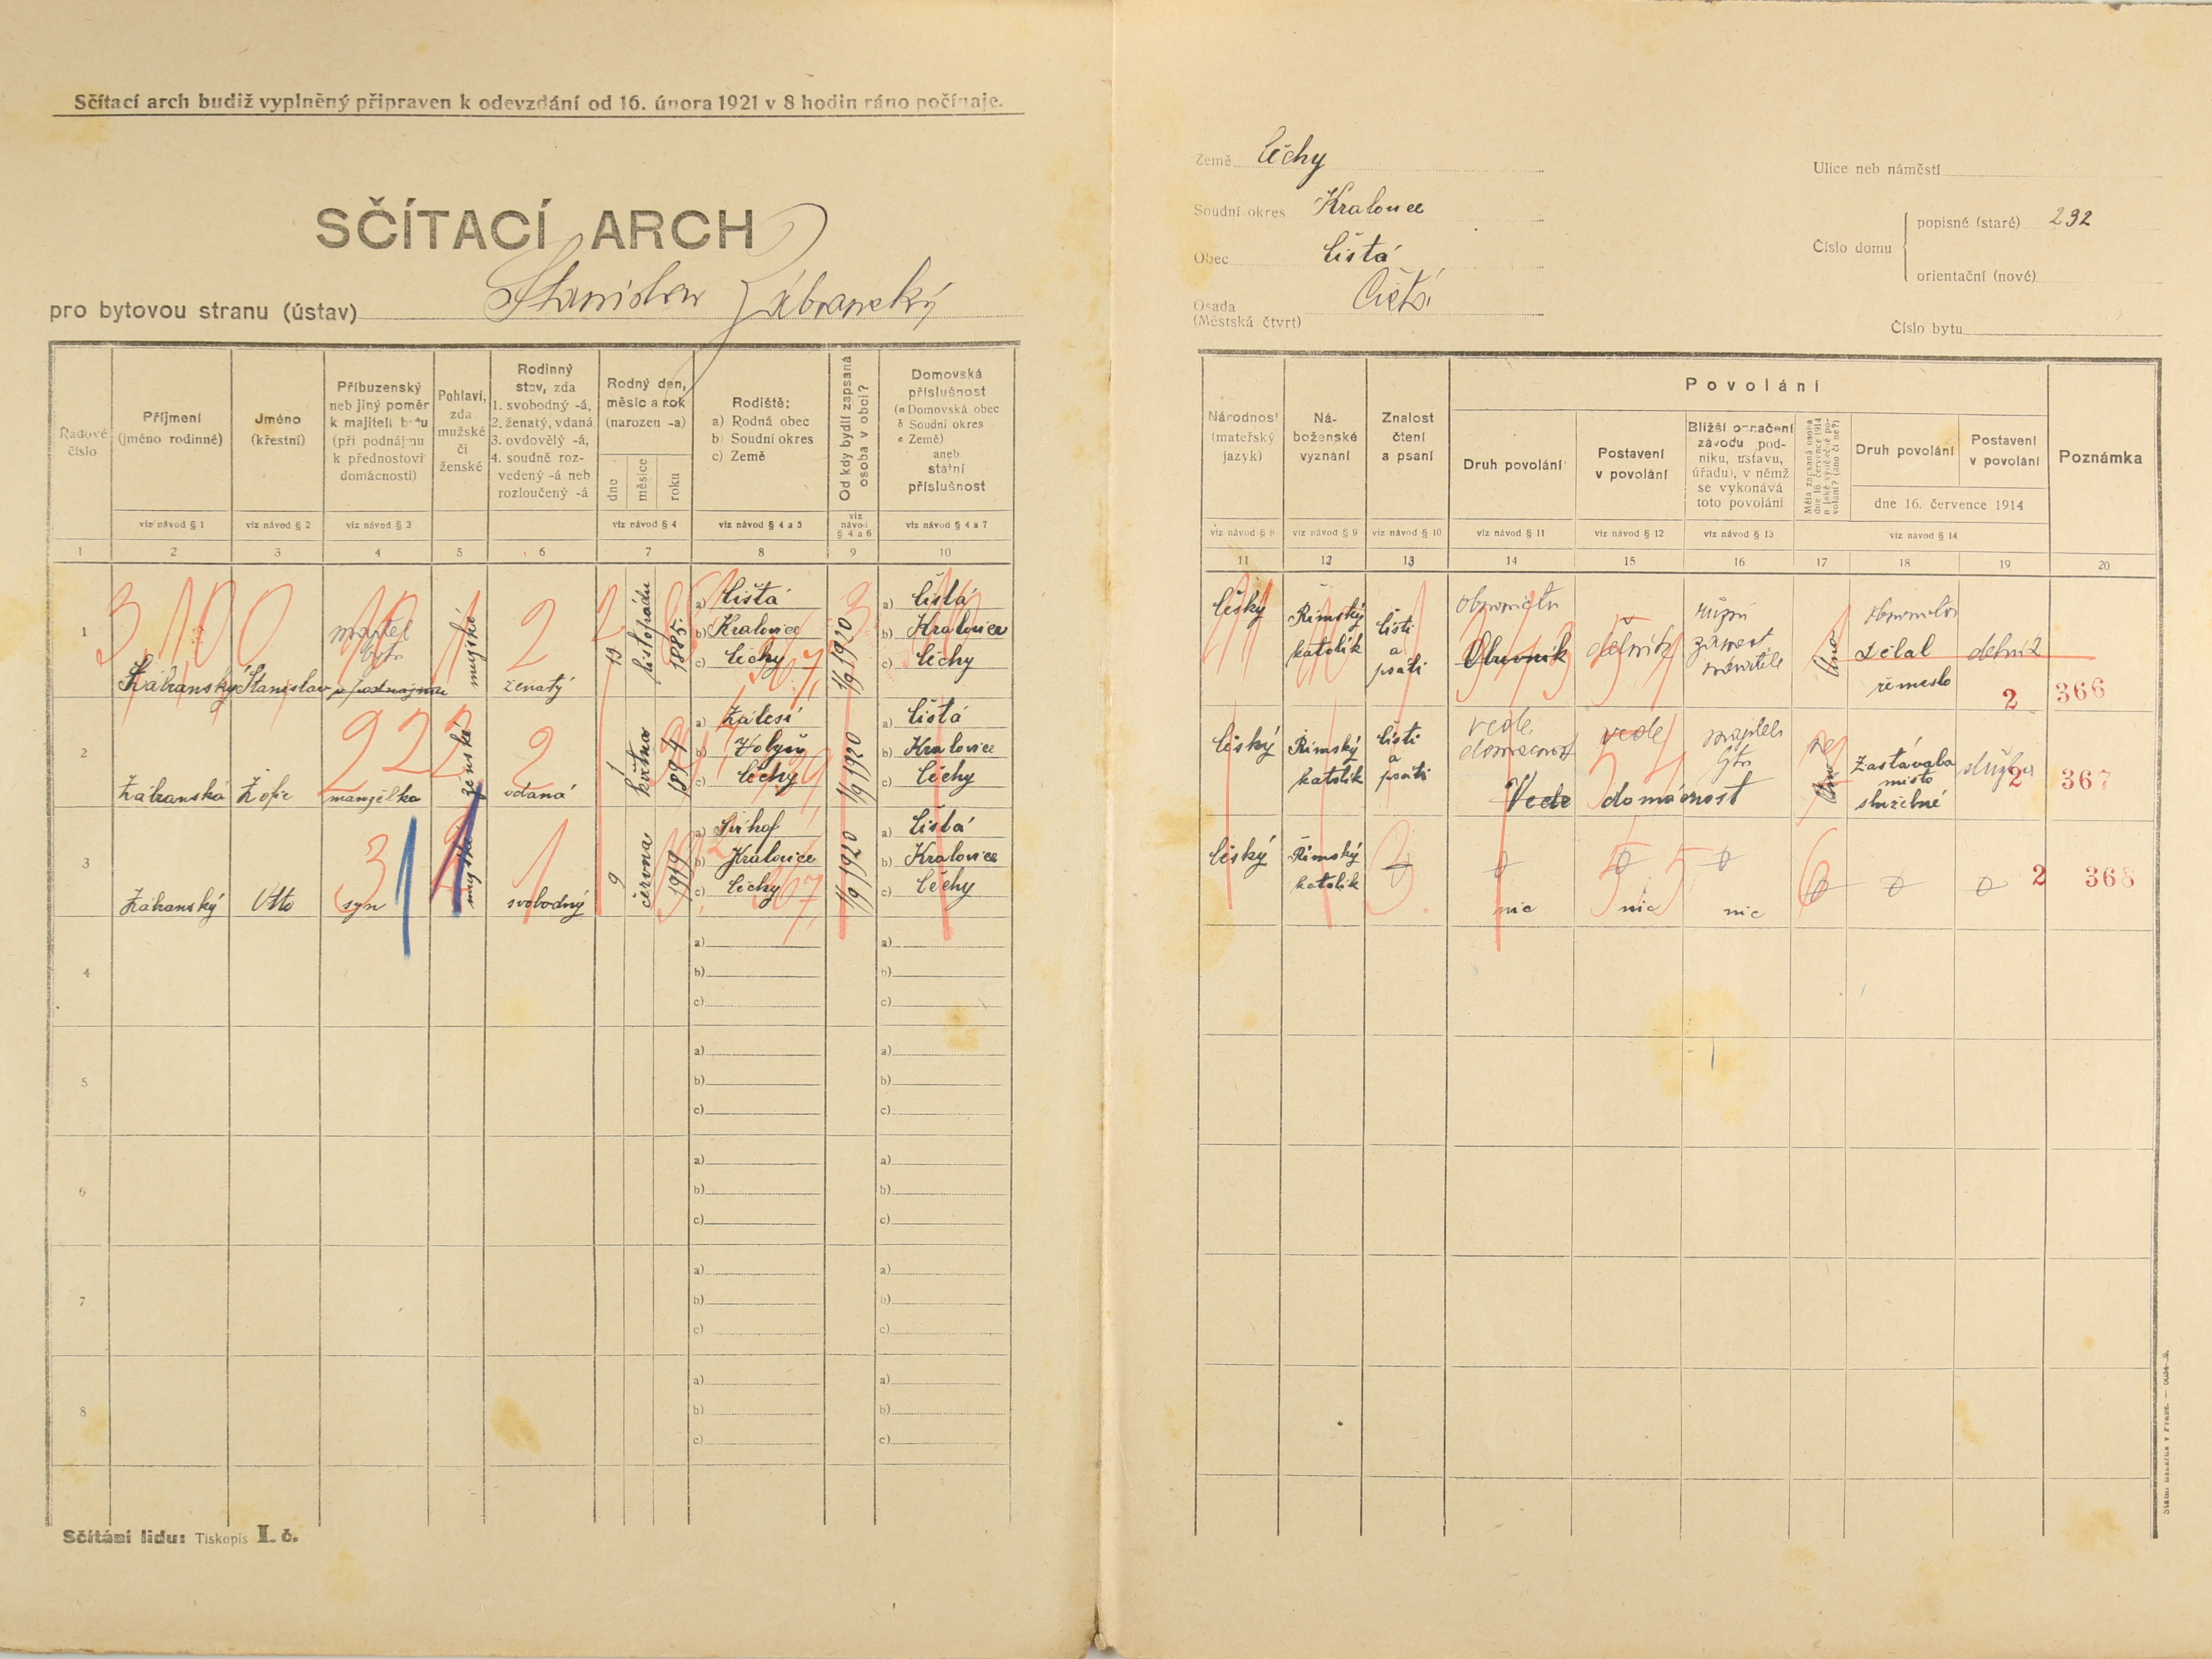 Sčítací arch budiž vyplněný připraven k odevzdání od 16. února 1921 v 8 hodin ráno počínaje.
SČÍTACÍ ARCH
pro bytovou stranu (ústav) Stanislav Zábranský
Řadové číslo
Příjmení (jméno rodinné)
Jméno (křestní)
Příbuzenský neb jiný poměr k majiteli bytu (při podnájmu k přednostovi domácnosti)
Pohlaví, zda mužské či ženské
Rodinný stav, zda 1. svobodný -á, 2. ženatý, vdaná 3. ovdovělý -á, 4. soudně rozvedený -á neb rozloučený -á
Rodný den, měsíc a rok (narozen -a)
dne
měsíce
roku
Rodiště:
a) Rodná obec
b) Soudní okres
c) Země
Od kdy bydlí zapsaná osoba v obci?
Domovská příslušnost
(a Domovská obec
b Soudní okres
c Země)
aneb
státní příslušnost
viz návod § 1
viz návod § 2
viz návod § 3
viz návod § 4
viz návod § 4 a 5
viz návod § 4 a 6
viz návod § 4 a 7
1 2 3 4 5 6 7 8 9 10
1
Zábranský
Stanislav
majitel bytu
mužské
ženatý
13
listopadu
1885.
a) Čistá
b) Kralovice
c) Čechy
1/9 1920
a) Čistá
b) Kralovice
c) Čechy
2
Zábranská
Žofie
manželka
ženské
vdaná
1
května
1894
a) Zálesí
b)
c) Čechy
1/9 1920
a) Čistá
b) Kralovice
c) Čechy
3
Zábranský
Otto
syn
mužské
svobodný
9
června
1919
a)
b) Kralovice
c) Čechy
1/9 1920
a) Čistá
b) Kralovice
c) Čechy
4
a)
b)
c)
a)
b)
c)
5
a)
b)
c)
a)
b)
c)
6
a)
b)
c)
a)
b)
c)
7
a)
b)
c)
a)
b)
c)
8
a)
b)
c)
a)
b)
c)
Sčítání lidu: Tiskopis I. č.
Země Čechy
Soudní okres Kralovice
Obec Čistá
Osada (Městská čtvrt) Čistá
Ulice neb náměstí
Číslo domu
popisné (staré) 232
orientační (nové)
Číslo bytu
Národnost (mateřský jazyk)
Náboženské vyznání
Znalost čtení a psaní
Povolání
Druh povolání
Postavení v povolání
Bližší označení závodu podniku, ústavu, úřadu), v němž se vykonává toto povolání
Měla zapsaná osoba dne 16 července 1914 n jaké výdělečné povolání? (ano či ne?)
Druh povolání
Postavení v povolání
dne 16. července 1914
Poznámka
viz návod § 8
viz návod § 9
viz návod § 10
viz návod § 11
viz návod § 12
viz návod § 13
viz návod § 14
11 12 13 14 15 16 17 18 19 20
český
Římský katolík
čísti a psáti
obuvnictví
Obuvník
dělník
různí zaměst.
Ano
obuvnictví
Dělal řemeslo
dělník
2
366
český
Římský katolík
čísti a psáti
vede domácnost
vede
majitele bytu
Vede domácnost
ne
Ano
Zastávala místo služebné
služka
2
367
český
Římský katolík
nic
nic
nic
2
368